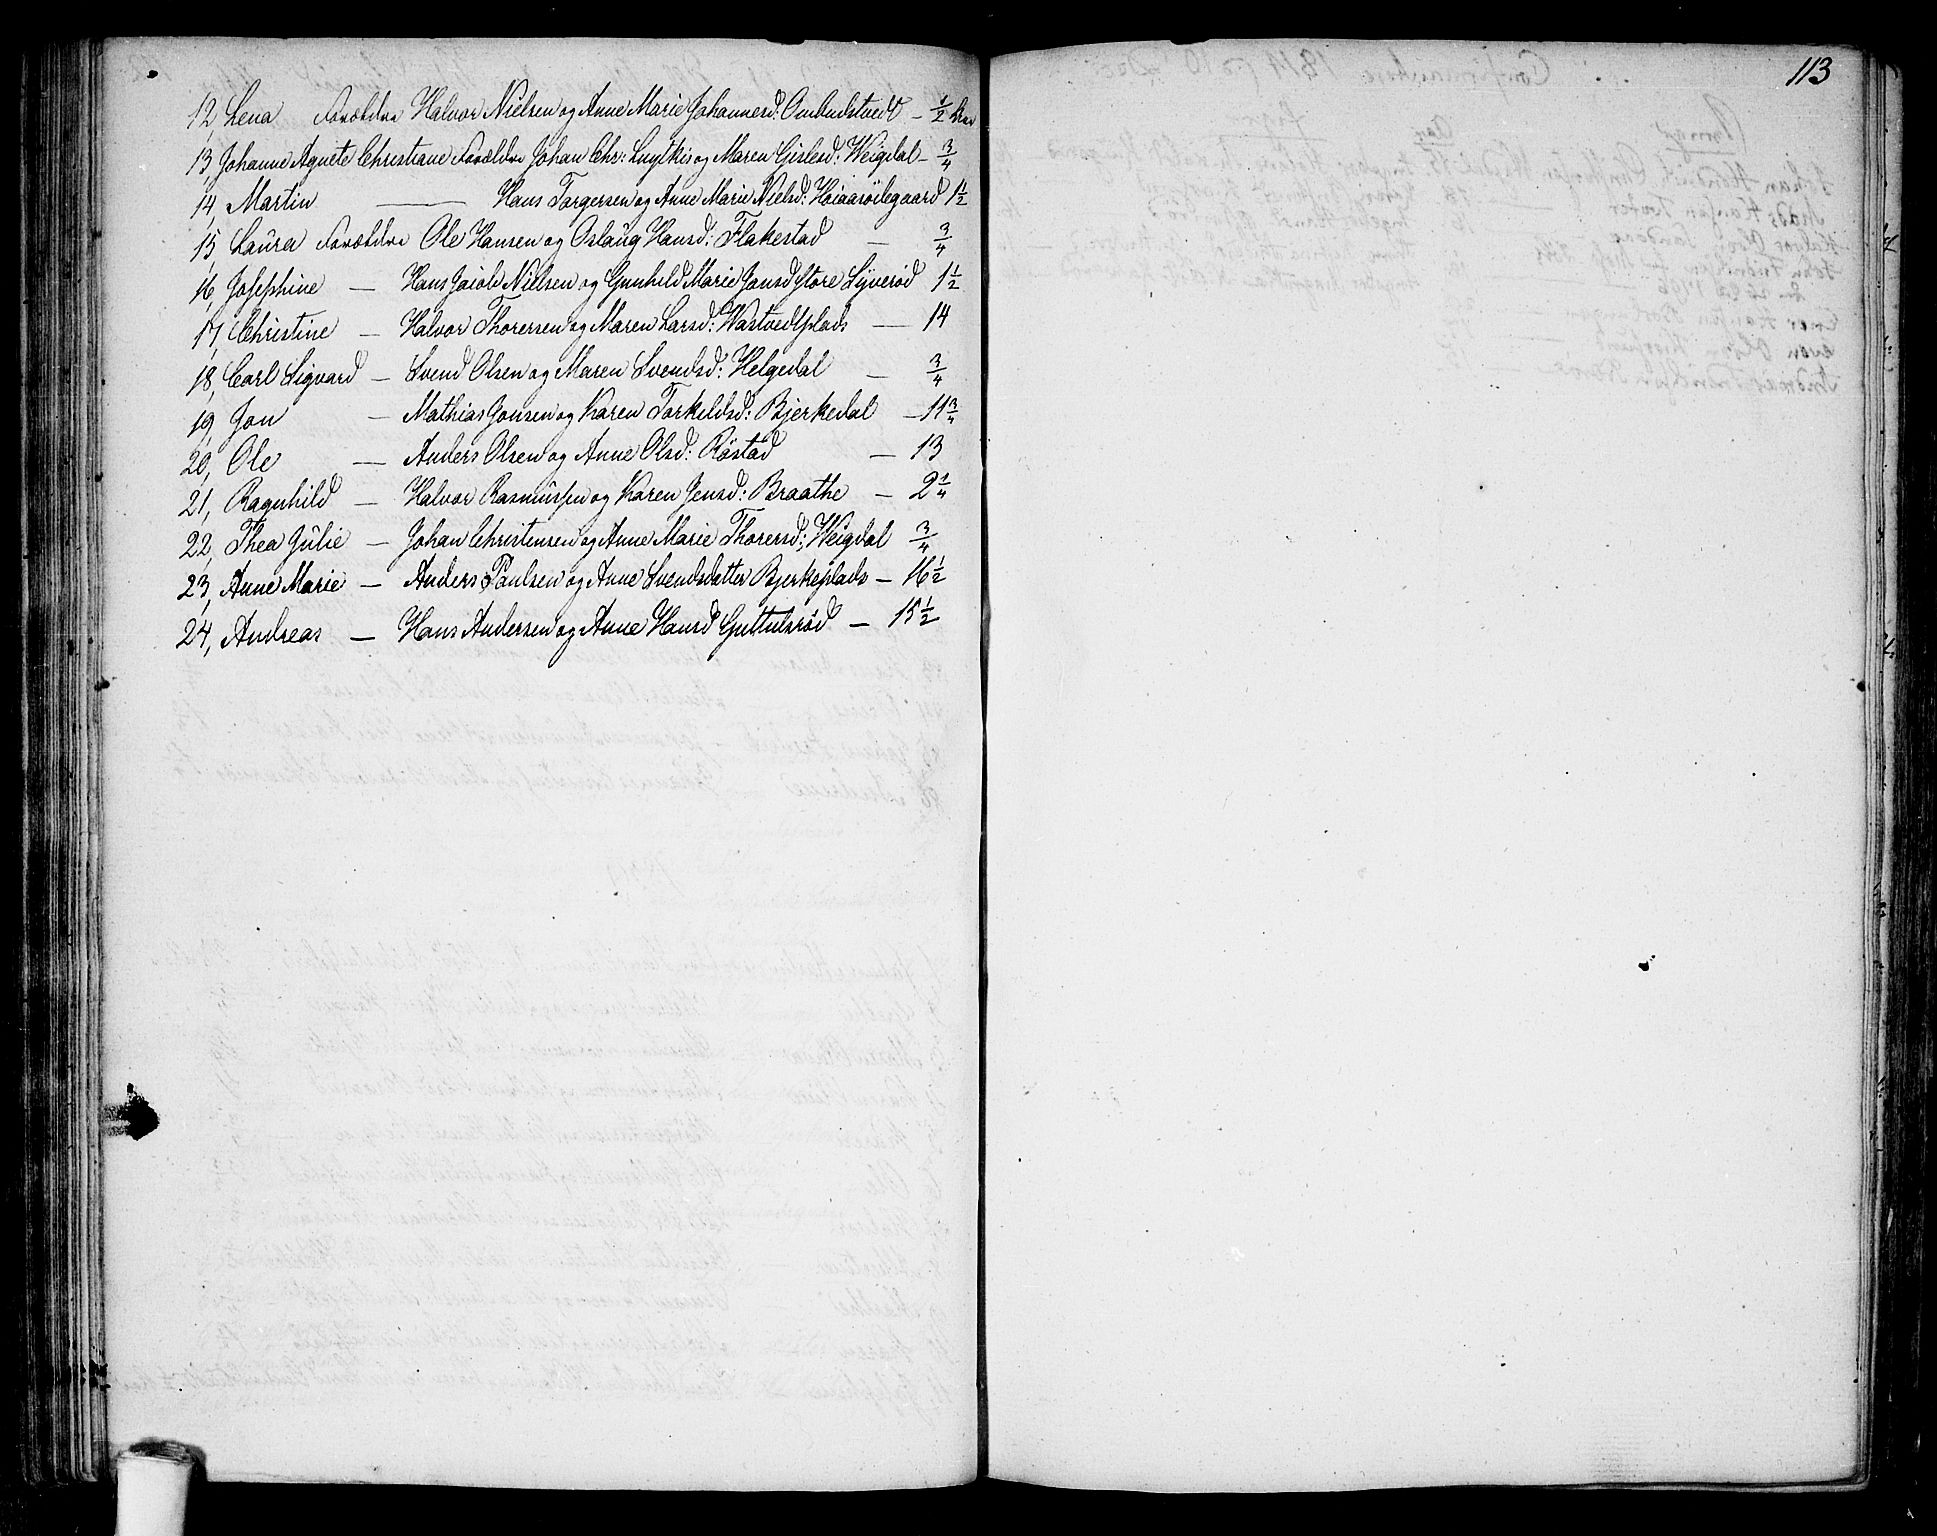 113
12, Lena Forældre Halvor Nielsen og Anne Marie Johannesd: Ombudstvedt – ½
13, Johanne Agnete Christiane Forældre Johan Chr: og Maren Gislesd: Weigdal – ¾
14, Martin — Hans Torgersen og Anne Marie Nielsd: 1½
15, Laura Forældre Ole Hansen og Aslaug Hansd: Flakestad – ¾
16, Josephine — Hans Jacob Nielsen og Gunhild Marie Jansd Store Lyverød 1½
17, Christine — Halvor Thorersen og Maren Larsd: Wastvedtplads — 14
18, Carl Sigvard – Svend Olsen og Maren Svendsd: Helgedal – ¾
19, Jon – Mathias Jonsen og Karen Torkildsd: Bjerkedal – 11¾
20, Ole — Anders Olsen og Anne Olsd: Røstad — 13
21, Ragnhild – Halvor Rasmussen og Karen Jensd: Braathe – 2¼
22, Thea Julie – Johan Christensen og Anne Marie Thorersd: Weigdal ¾
23, Anne Marie – Anders Paulsen og Anne Svendsdatter Bjerkeplads – 16½
24, Andreas — Hans Andersen og Anne Hansd Guttulsrød – 15½